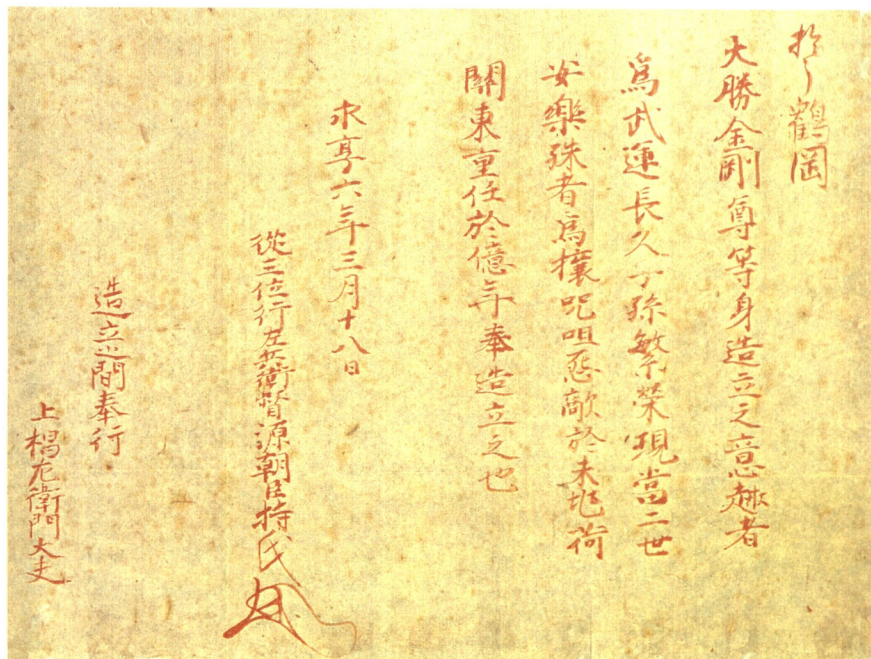 於鶴岡
大勝金剛尊等身造立之意趣者
為武運長久子孫繁栄現當二世
安樂殊者為攘咒咀怨敵於未兆荷
關東重任於億年奉造立之也
永享六年三月十八日
從三位行左兵衛督源朝臣持氏
造立之間奉行
上椙左衛門大夫